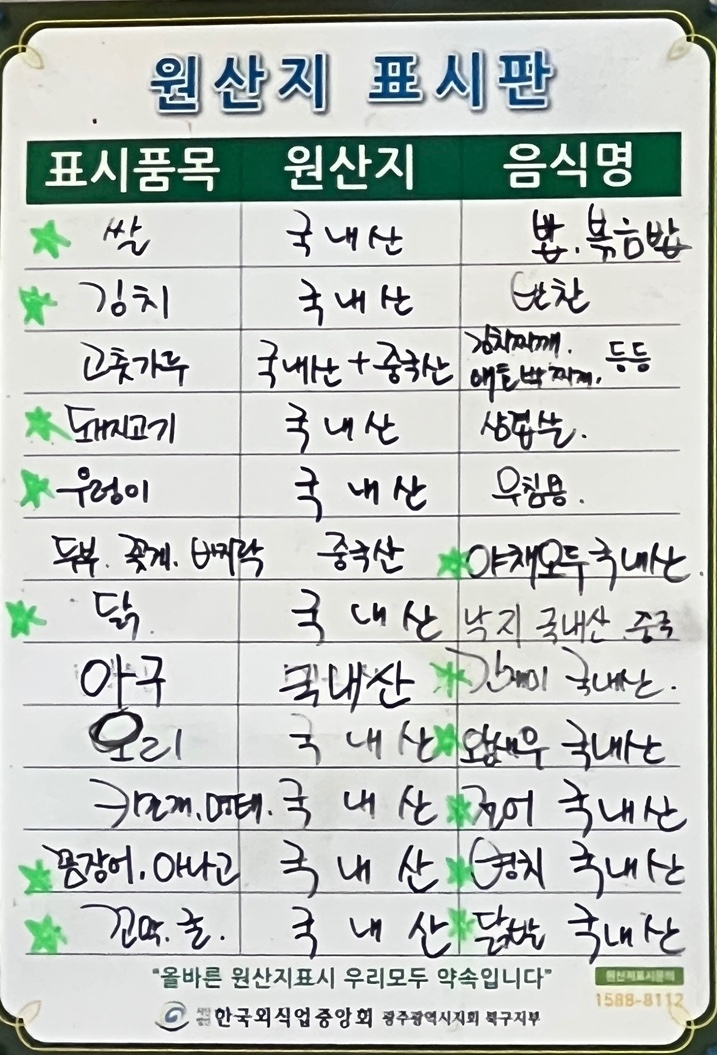 원산지 표시판
표시품목 원산지 음식명
쌀 국내산 밥. 볶음밥
김치 국내산 반찬
고춧가루 국내산+중국산 김치찌개. 애호박찌개. 등등
돼지고기 국내산 삼겹살.
우렁이 국내산 무침용.
두부. 꽃게. 바지락 중국산 야채모두국내산.
닭. 국내산 낙지 국내산. 중국
아구 국내산 간재미 국내산.
오리 국내산 왕새우 국내산
명태. 국내산 국내산
꼼장어. 아나고 국내산 병치 국내산
꼬막. 굴. 국내산 닭발 국내산
“올바른 원산지표시 우리모두 약속입니다”
원산지표시문의
1588-8112
사단법인 한국외식업중앙회 광주광역시지회 북구지부